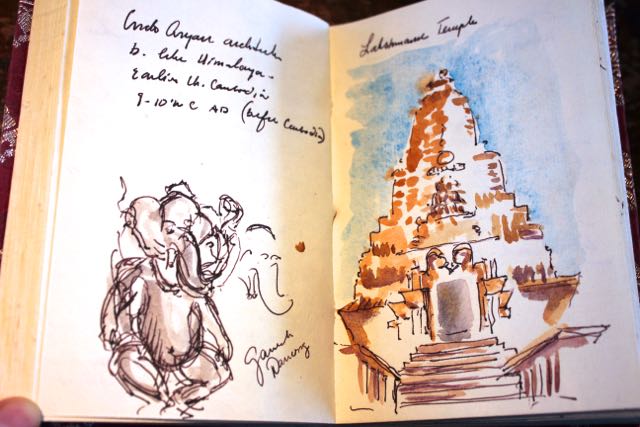 Indo Aryan architecture
b. like Himalaya -
Earlier th. Cambodia
9-10th C AD (before Cambodia)
Ganesh
Lakshmana Temple